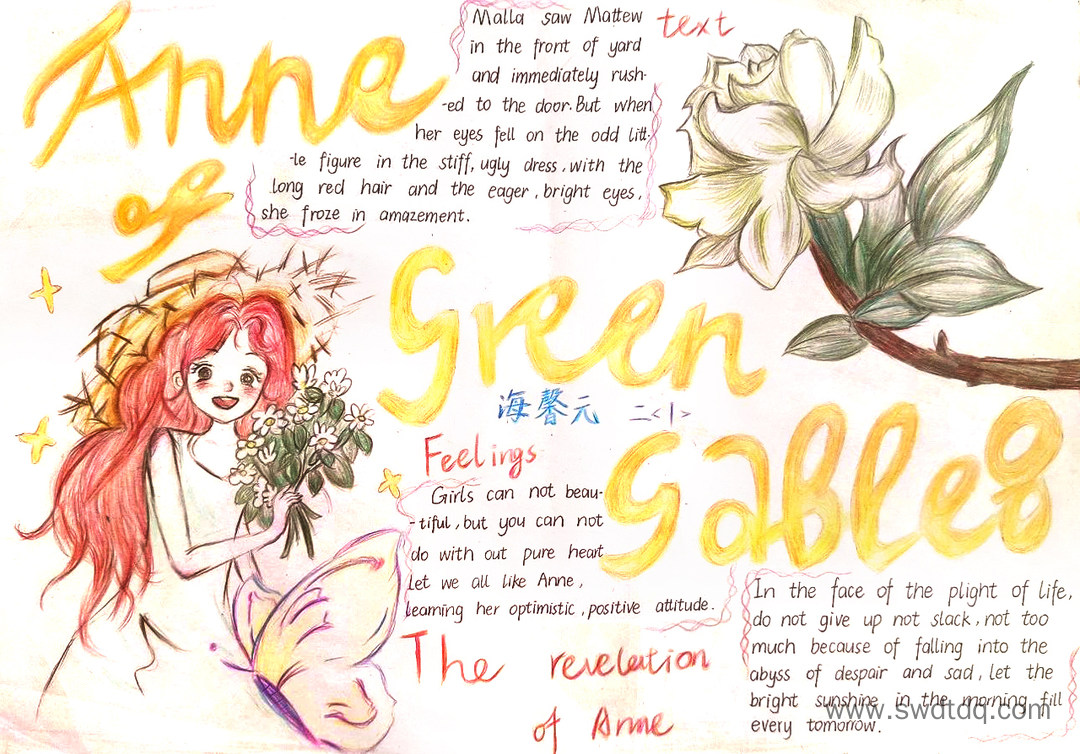 Anne
of
Green
Gables
text
Malla saw Mattew
in the front of yard
and immediately rush-
-ed to the door. But when
her eyes fell on the odd litt-
-le figure in the stiff, ugly dress, with the
long red hair and the eager, bright eyes,
she froze in amazement.
海馨元 二<1>
Feelings
Girls can not beau-
-tiful, but you can not
do with out pure heart
Let we all like Anne,
learning her optimistic, positive attitude.
The revelation
of Anne
In the face of the plight of life,
do not give up not slack, not too
much because of falling into the
abyss of despair and sad, let the
bright sunshine in the morning fill
every tomorrow.
www.swdtdq.com